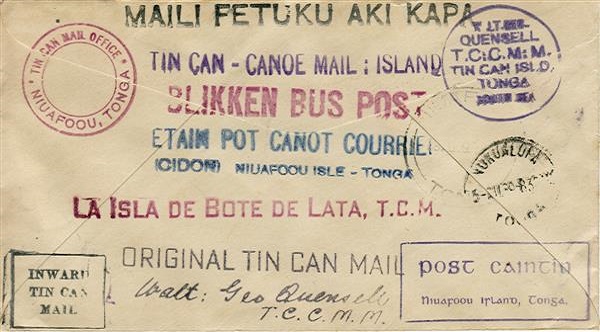 MAILI FETUKU AKI KAPA
TIN CAN MAIL OFFICE
NIUAFOOU, TONGA
WALT. GEO.
QUENSELL
T.C.C.M.M.
TIN CAN ISLD.
TONGA
SOUTH SEA
TIN CAN - CANOE MAIL : ISLAND
BLIKKEN BUS POST
ETAIN POT CANOT COURRIER
(CIDON) NIUAFOOU ISLE - TONGA
NUKUALOFA
TONGA
LA ISLA DE BOTE DE LATA, T.C.M.
INWARD
TIN CAN
MAIL
ORIGINAL TIN CAN MAIL
Walt: Geo Quensell
T.C.C.M.M.
POST CAINTIN
Niuafoou Irland, Tonga.